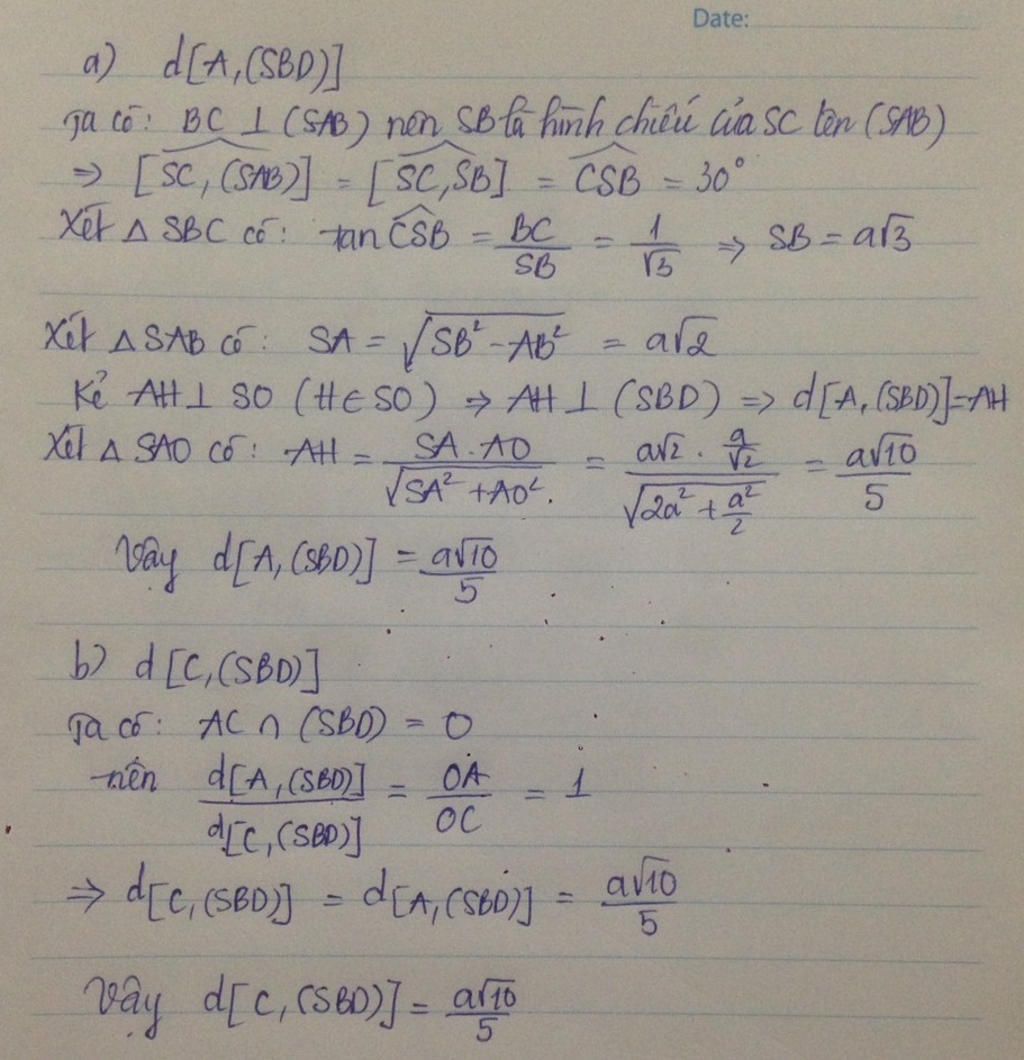 Date:
a) d[A,(SBD)]
Ta có: BC ⊥ (SAB) nên SB là hình chiếu của SC lên (SAB)
⇒ [SC,(SAB)]^ = [SC,SB]^ = CSB^ = 30°
Xét △ SBC có: tan CSB^ = BC/SB = 1/√3 ⇒ SB = a√3
Xét △ SAB có: SA = √(SB² - AB²) = a√2
Kẻ AH ⊥ SO (H ∈ SO) ⇒ AH ⊥ (SBD) ⇒ d[A,(SBD)] = AH
Xét △ SAO có: AH = SA.AO/√(SA² + AO²) = (a√2 . a/√2)/√(2a² + a²/2) = a√10/5
Vậy d[A,(SBD)] = a√10/5
b) d[C,(SBD)]
Ta có: AC ∩ (SBD) = O
nên d[A,(SBD)]/d[C,(SBD)] = OA/OC = 1
⇒ d[C,(SBD)] = d[A,(SBD)] = a√10/5
Vậy d[C,(SBD)] = a√10/5